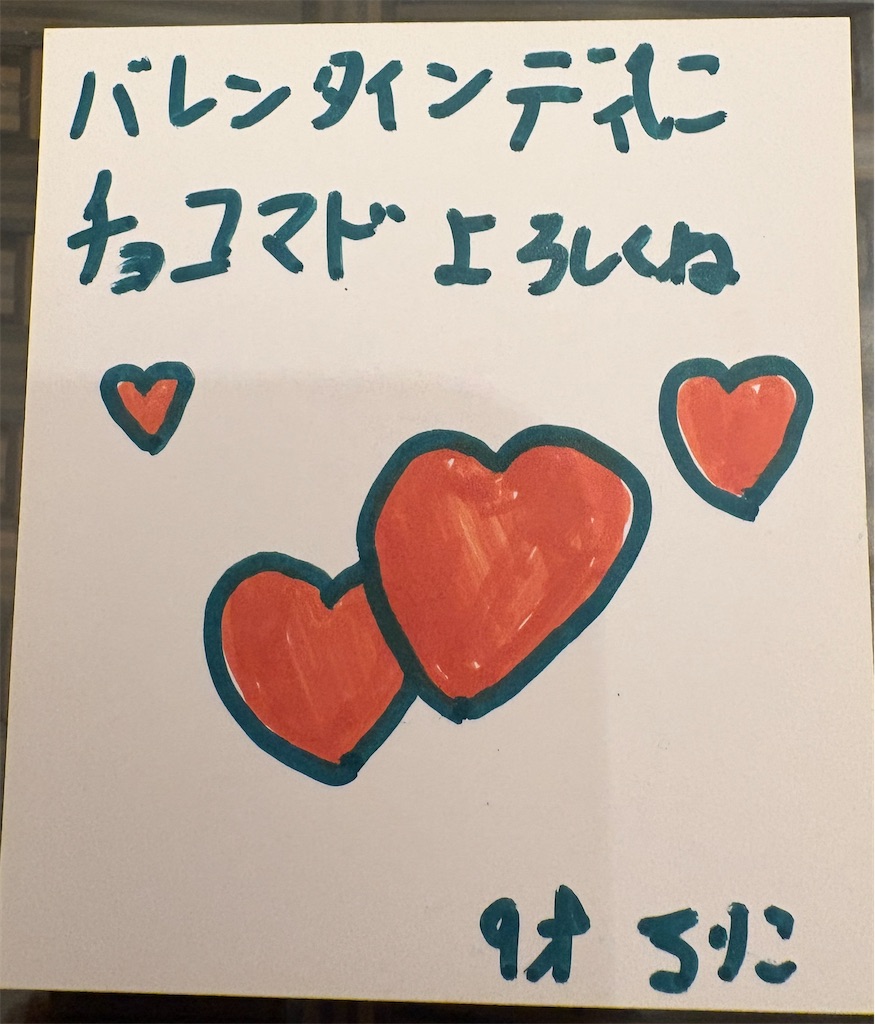 バレンタインディに
チョコマド よろしくね
9才 るりこ